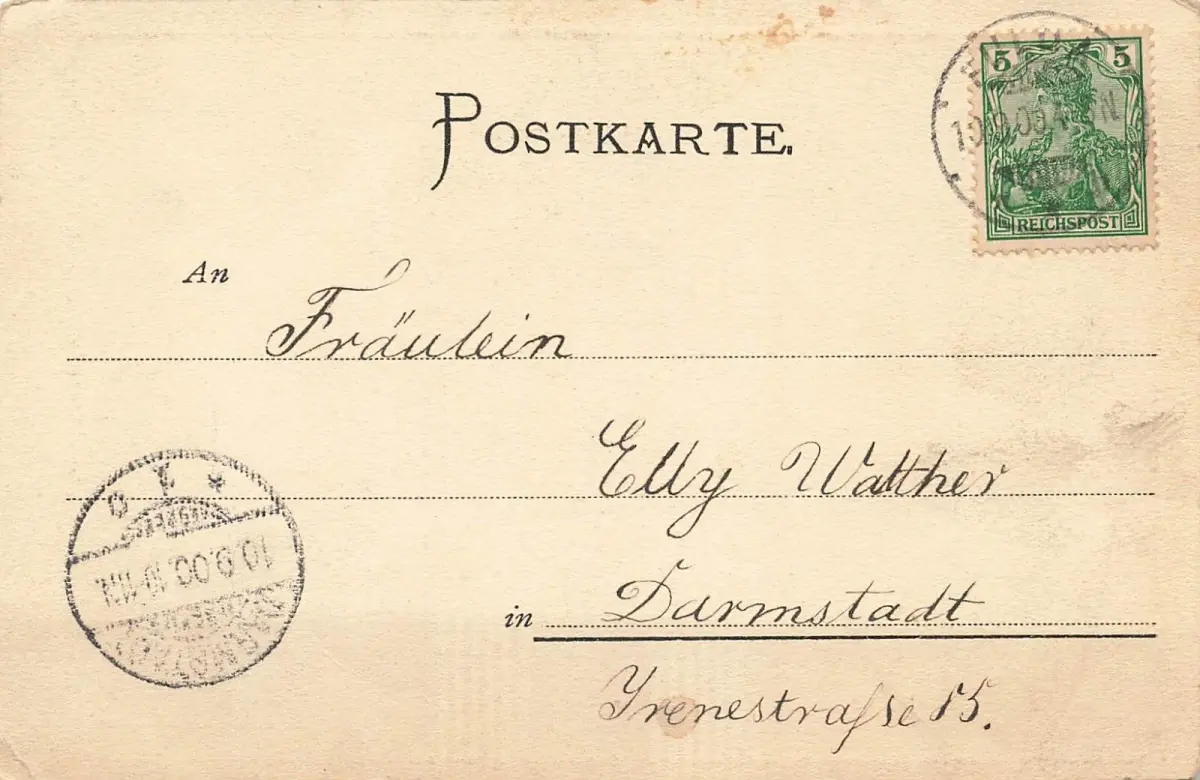 POSTKARTE.
5 5
REICHSPOST
An
Fräulein
Elly Walther
in Darmstadt
Irenestraſse 15.
10.9.00. 10-11N.